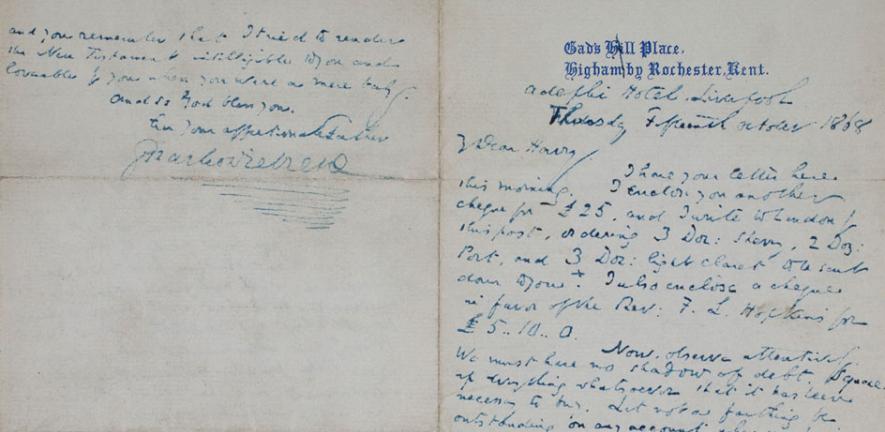 and you remember that I tried to render
the New Testament intelligible to you and
lovable by you when you were a mere baby.
And so God bless you.
Ever your affectionate Father
Charles Dickens
Gad's Hill Place,
Higham by Rochester, Kent.
Adelphi Hotel, Liverpool
Thursday Fifteenth October 1868
My Dear Harry,
I have your letter here
this morning. I enclose you another
cheque for £25, and I write to London by
this post, ordering 3 Doz: Sherry, 2 Doz:
Port, and 3 Doz: light claret, to be sent
down to you. + I also enclose a cheque
in favor of the Rev: F. L. Hopkins for
£5..10..0.
Now, observe attentively
We must have no shadow of debt. Square
up everything whatsoever that it has been
necessary to buy. Let not a farthing be
outstanding on any account